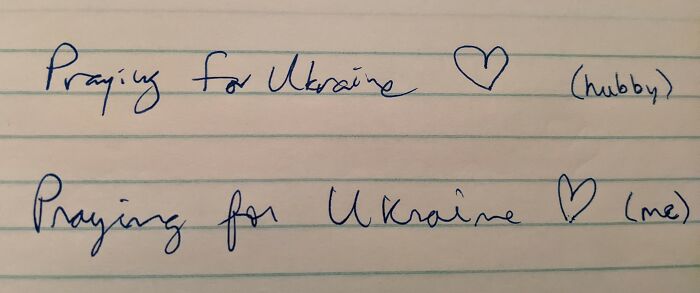 Praying for Ukraine ♡ (hubby)
Praying for Ukraine ♡ (me)